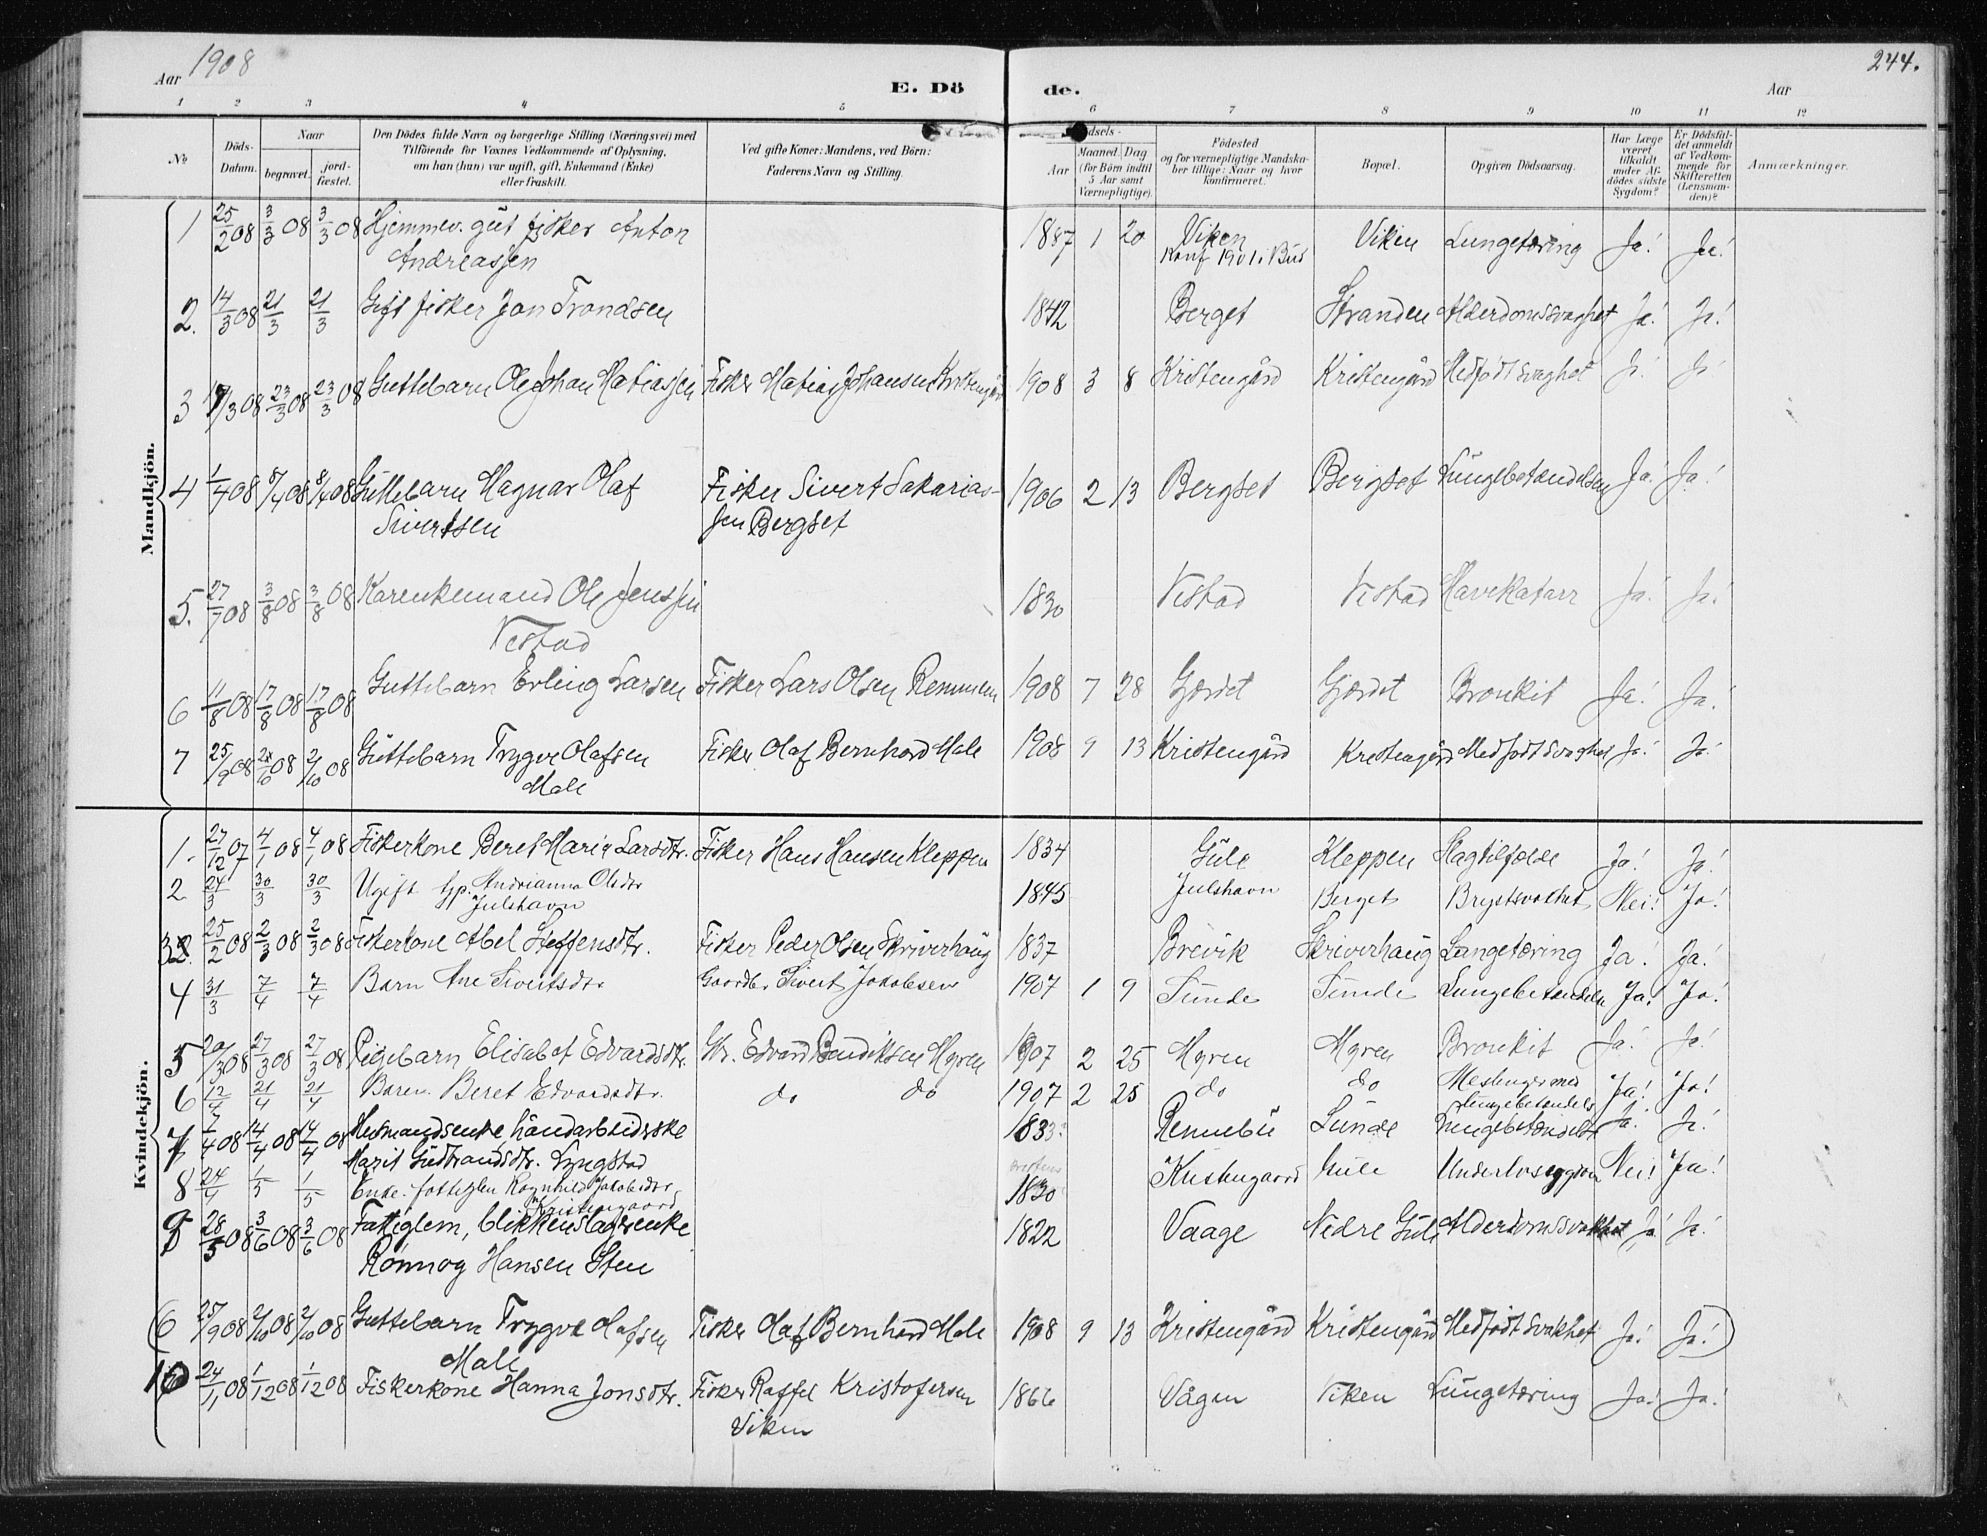 Aar 1908
E. Döde.
Aar
244.
1 2 3 4 5 6 7 8 9 10 11 12
No
Döds-Datum.
Naar
begravet.
jord-fæstet.
Den Dödes fulde Navn og borgerlige Stilling (Næringsvei) med
Tilföiende for Voxnes Vedkommende af Oplysning,
om han (hun) var ugift, gift, Enkemand (Enke)
eller fraskilt.
Ved gifte Koner: Mandens, ved Börn:
Faderens Navn og Stilling.
Aar
Maaned
Dag
(for Börn indtil
5 Aar samt
Værnepligtige).
Födested
og for værnepligtige Mandska-
ber tillige: Naar og hvor
konfirmeret.
Bopæl.
Opgiven Dödsaarsag.
Har Læge
været
tilkaldt
under Af-
dödes sidste
Sygdom?
Er Dödsfal-
det anmeldt
af Vedkom-
mende för
Skifteretten
(Lensman-
den)?
Anmærkninger.
Mandkjön.
1 25/2 08 3/3 08 3/3 08 Hjemmev. gut fisker Anton 1887 1 20 Viken Viken Lungetæring Ja! Ja!
Andreassen Konf 1901 i Bud
2. 14/3 08 21/3 21/3 Gift fisker Jon Trondsen 1842 Berget Stranden Alderdomssvaghet Ja! Ja!
3 17/3 08 23/3 08 23/3 08 Guttebarn Ole Johan Matiassen Fisker Matias Johansen Kristengård 1908 3 8 Kristengård Kristengård Medfødt svaghet Ja! Ja!
4 1/4 08 8/4 08 8/4 08 Guttebarn Magnar Olaf Fisker Sivert Sakarias- 1906 2 13 Bergset Bergset Lungebetændelsen Ja! Ja!
Sivertsen sen Bergset
5. 27/7 08 3/8 08 3/8 08 Karenkemand Ole Jenssen 1830 Vestad Vestad Mavekatarr Ja! Ja!
Vestad
6 11/8 08 17/8 08 17/8 08 Guttebarn Erling Larsen Fisker Lars Olsen Remmem 1908 7 28 Gjerdet Gjerdet Bronkit Ja! Ja!
7 25/9 08 2/10 08 2/10 08 Guttebarn Trygve Olafsen Fisker Olaf Bernhard Male 1908 9 13 Kristengård Kristengård Medfødt svaghet Ja! Ja!
Male
Kvindekjön.
1. 27/12 07 4/1 08 4/1 08 Fiskerkone Beret Marie Larsdtr. Fisker Hans Hansen Kleppen 1834 Gule Kleppen Slagtilfælde Ja! Ja!
2 24/3 30/3 30/3 Ugift Andrianna Olsdtr 1845 Julshavn Berget Brystsvakhet Nei! Ja!
Julshavn
3 25/2 08 2/3 08 2/3 08 Fiskerkone Abel Steffensdtr. Fisker Peder Olsen Skriverhaug 1837 Brevik Skriverhaug Lungetæring Ja! Ja!
4 31/3 7/4 7/4 Barn Ane Sivertsdtr Gaardbr. Sivert Jakobsen 1907 1 9 Sunde Sunde Lungebetændels Ja! Ja!
5 20/3 08 27/3 08 27/3 08 Pigebarn Elisabet Edvardsdtr. Gbr. Edvard Bendiksen Myren 1907 2 25 Myren Myren Bronkit Ja! Ja!
6 12/4 21/4 21/4 Baren Beret Edvardsdtr. do do 1907 2 25 do do Meslinger med Ja! Ja!
lungebetændels
7 7/4 08 14/4 08 14/4 08 Husmandsenke håndarbeiderske 1833 Rennebu Sunde Lungebetændelse Ja! Ja!
Marit Gudbrandsdtr. Lyngstad
8 24/4 1/5 1/5 Enke fattiglem Ragnhild Jakobsdtr 1830 Kristengaard Gule Underlivssygdom Nei! Ja!
Kristengaard
9 28/5 08 3/6 08 3/6 08 Fattiglem, blikkenslagerenke 1822 Vaage Nedre Gule Alderdomssvakhet Ja! Ja!
Rönnog Hansen Sten
(6 25/9 08 2/10 08 2/10 08 Guttebarn Trygve Olafsen Fisker Olaf Bernhard Male 1908 9 13 Kristengård Kristengård Medfødt svakhet Ja! Ja!)
Male
10 24/11 08 1/12 08 1/12 08 Fiskerkone Hanna Jonsdtr. Fisker Raffel Kristofersen 1866 Vågen Viken Lungetæring Ja! Ja!
Viken